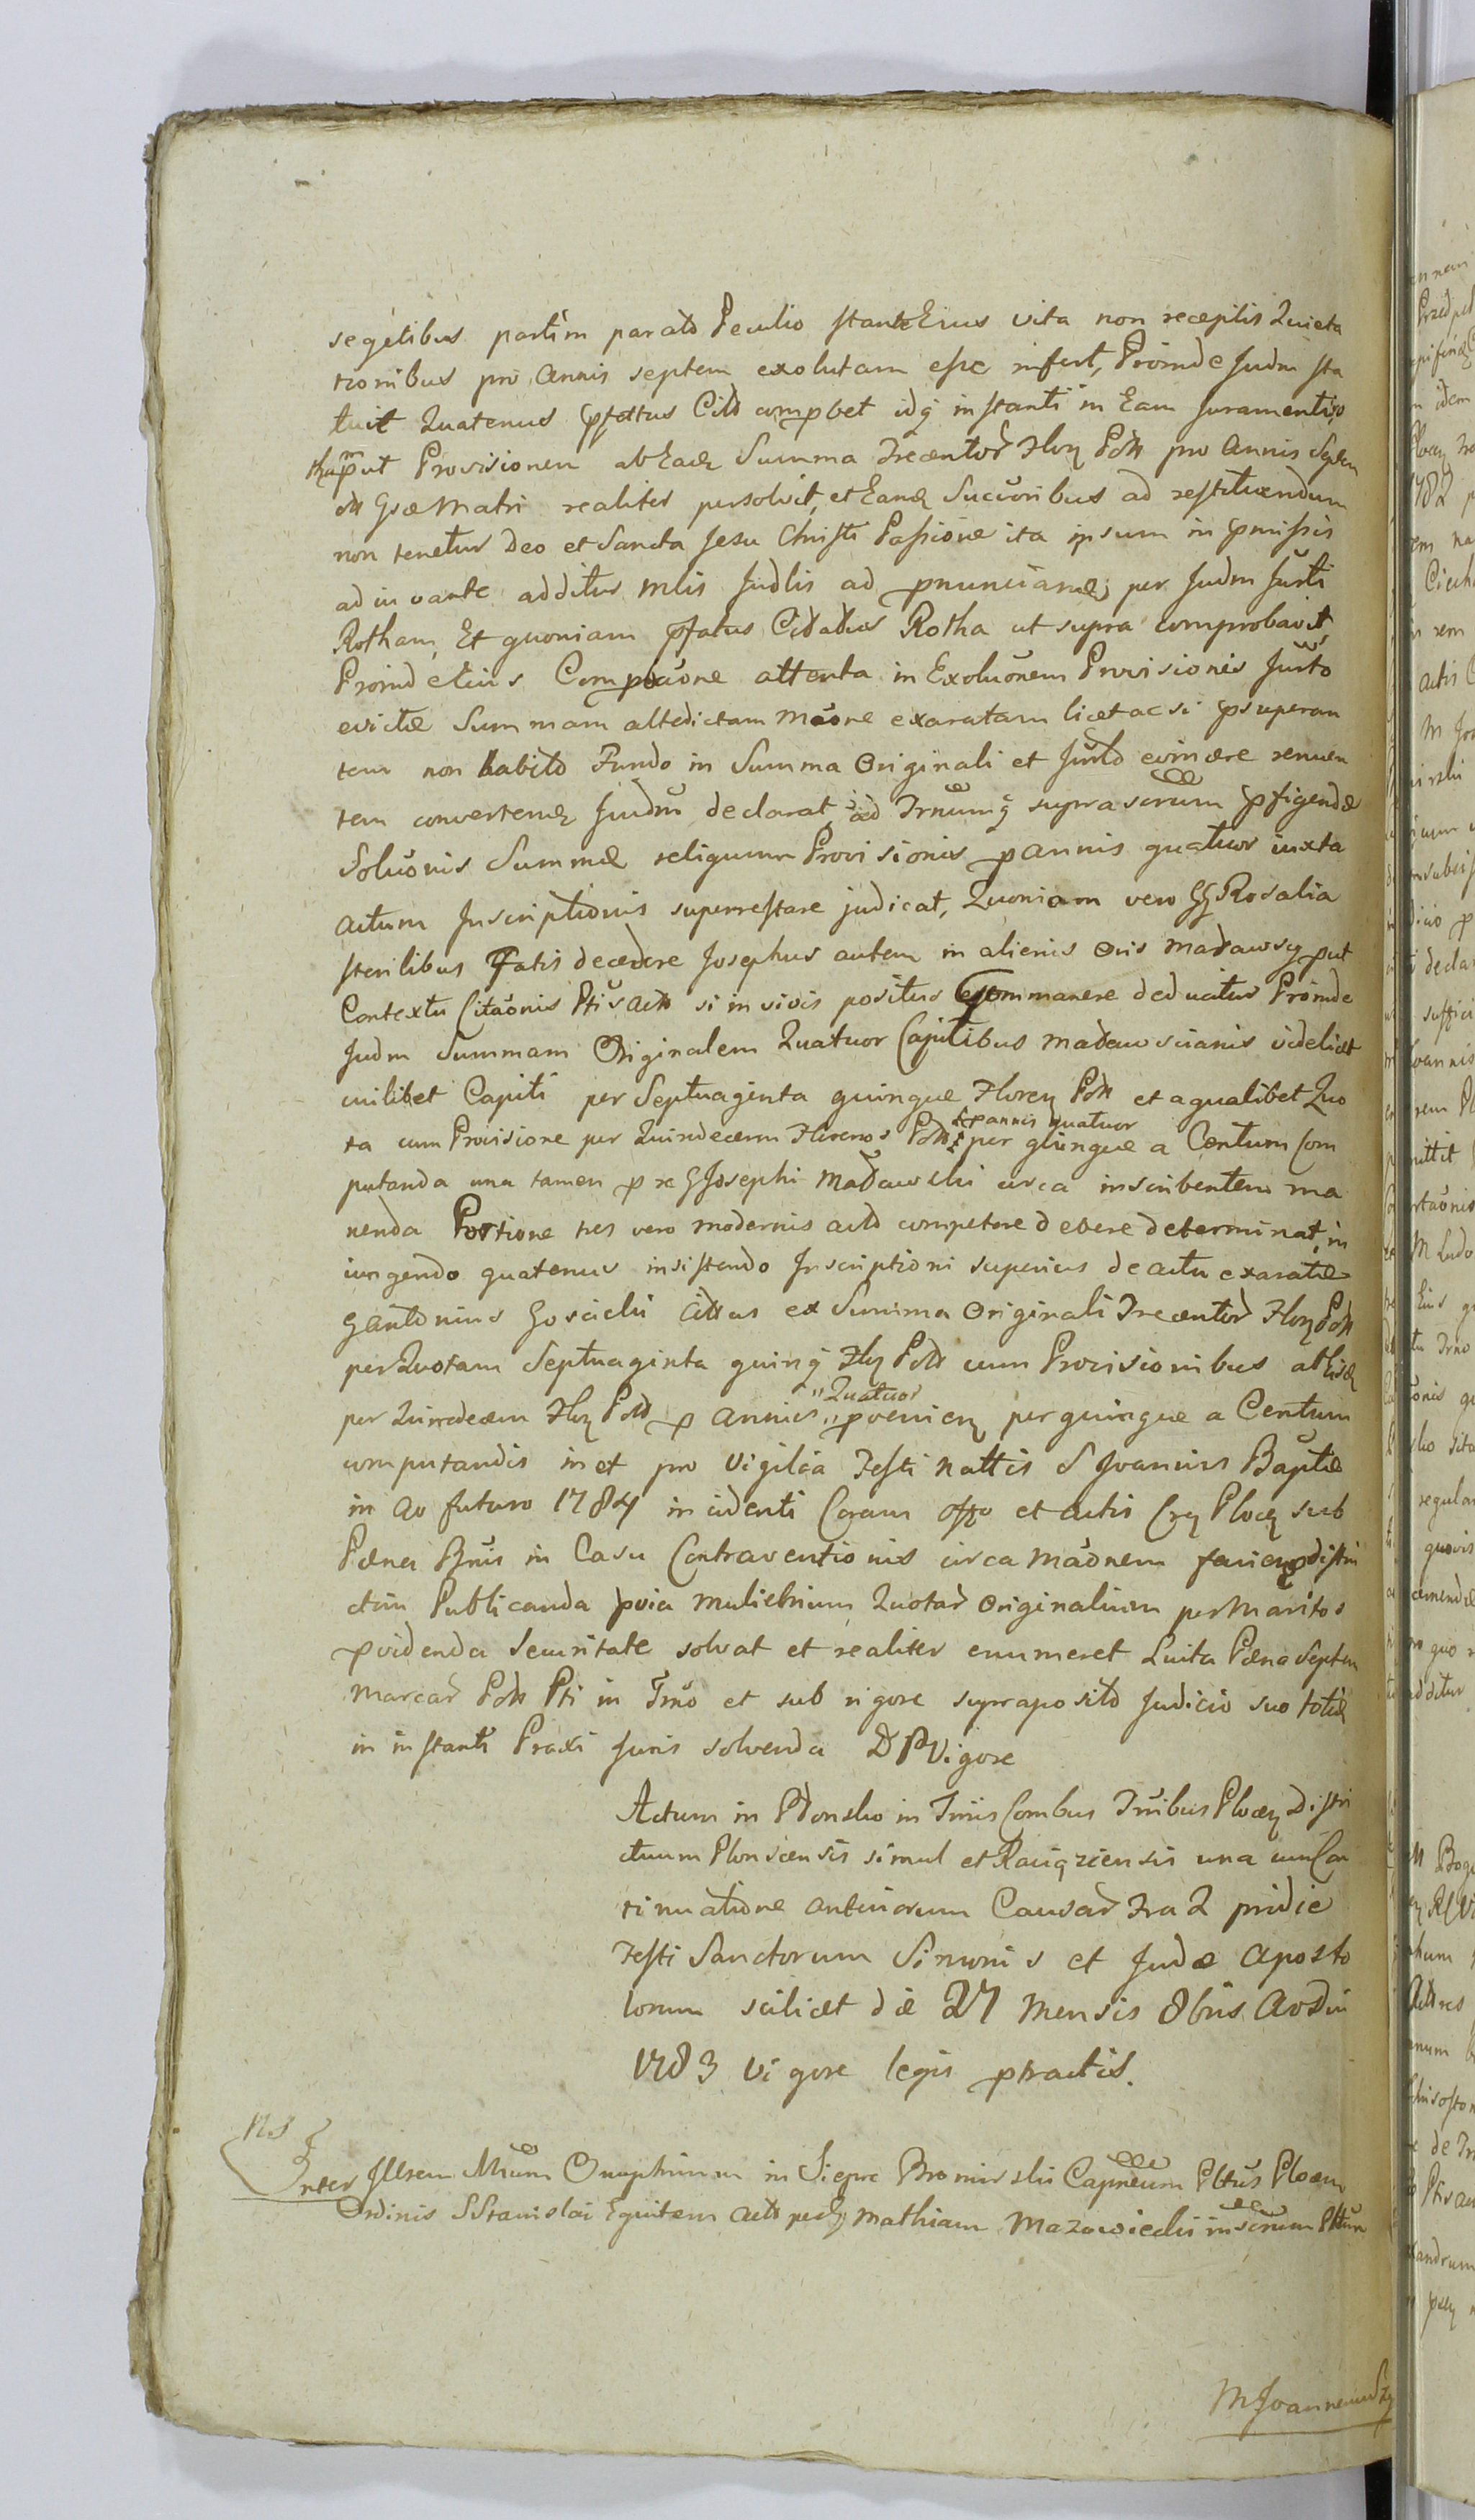 segetibus partim parato Peculio stante Eius vita non receptis Quieta
tionibus pro Annis septem exolutam esse infert, Proinde Judm sta
tuit Quatenus pfattus Citt comprobet idq in stanti in Eam Juramenti
Rotham put Provisionem ab Eade Summa Trecentor Flor Poll pro Annis Septem
Matri realiter persolvit, et Eande Sucoribus ad restituendum
non tenetur Deo et Sancta Jesu Christi Passione ita ipsum in pmissis
adiuvante additur Mlis Judlis ad pnunciande per Judm Jurti
Rotham, Et quoniam pfatus Citatus Rotha ut supra comprobavit,
Proinde eius Compbaone attenta in Exoluonem Provisionis Jurto
evictæ Summam altedictam maone exaratam licet ac si psuperan
tem non habito Fundo in Summa Originali et Jurto renuen
tem convertende Judm declarat, ad Trnumq suprascrum pfigendæ
Soluonis Summæ reliquum Provisionis p annis quatuor iuxta
Actum Inscriptionis superrestare judicat, Quoniam vero GG Rosalia
sterilibus Fatis decedere Josephus autem in alienis Oris Madawscy put
Contextu Citaonis Pti s act si in vivis positus commanere deducitur Proinde
Judm Summam Originalem Quatuor Capitibus Madawscianis videlicet
cuilibet Capiti per Septuaginta quinque Floren Poll et a qualibet Quo
ta cum Provisione per Quindecem Florenos Poll p annis quatuor per quinque a Centum Com
putanda una tamen p re G Josephi Madawski circa inscribentem ma
nenda Portione tres vero modernis acto competere debere determinat, in
iungendo quatenus insistendo Inscriptioni superius de actu exaratæ
G Antonius Gosicki citus ex Summa Originali Trecentor Flor Poll
per Quotam Septuaginta quinq Flor Poll cum Provisionibus ab Eisde
per Quindecem Flor Poll p Annis Quatuor pvenien per quinque a Centum
computandis in et pro Vigilia Festi Nattis S Joannis Baptæ
in Ao futuro 1784 incidenti Coram Offo et Actis Cren Plocen sub
Pæna Bnis in Casu Contraventionis circa maonem distri
ctim Publicanda pvia mulierium Quotar Originalium per Maritos
pvidenda Securitate solvat et realiter enumeret Luita Pæna Septem
Marcar Poll Pti in Trno et sub rigore supraposito Judicio suo toties
in instanti Praxi Juris solvenda D P Vigore
Actum in Plonsko in Trnis Combus Trribus Plocen Distri
ctuum Plonscensis simul et Raciąziensis una cum Con
tinuatione anteriorum Causar Fra 2 pridie
Festi Sanctorum Simonis et Judæ Aposto
lorum scilicet die 27 Mensis 8bris Ao Dni
1783 vigore legis ptractis.
NS
Inter Illsem Mcum Onuphrium in Siepre Bromirski Capneum Pltus Plocen
Ordinis S Stanislai Equitem Act Mathiam Mazowiecki
M Joannem